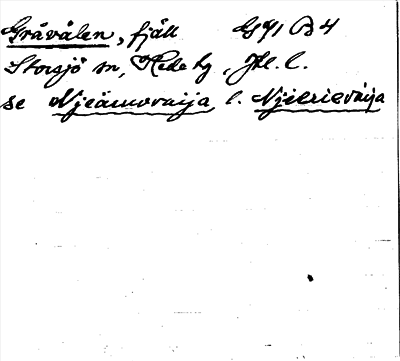 Gråvålen, fjäll G41 B4
Storsjö sn, Hede tg, Jtl. l.
se Njeämovaija l. Njierievaija